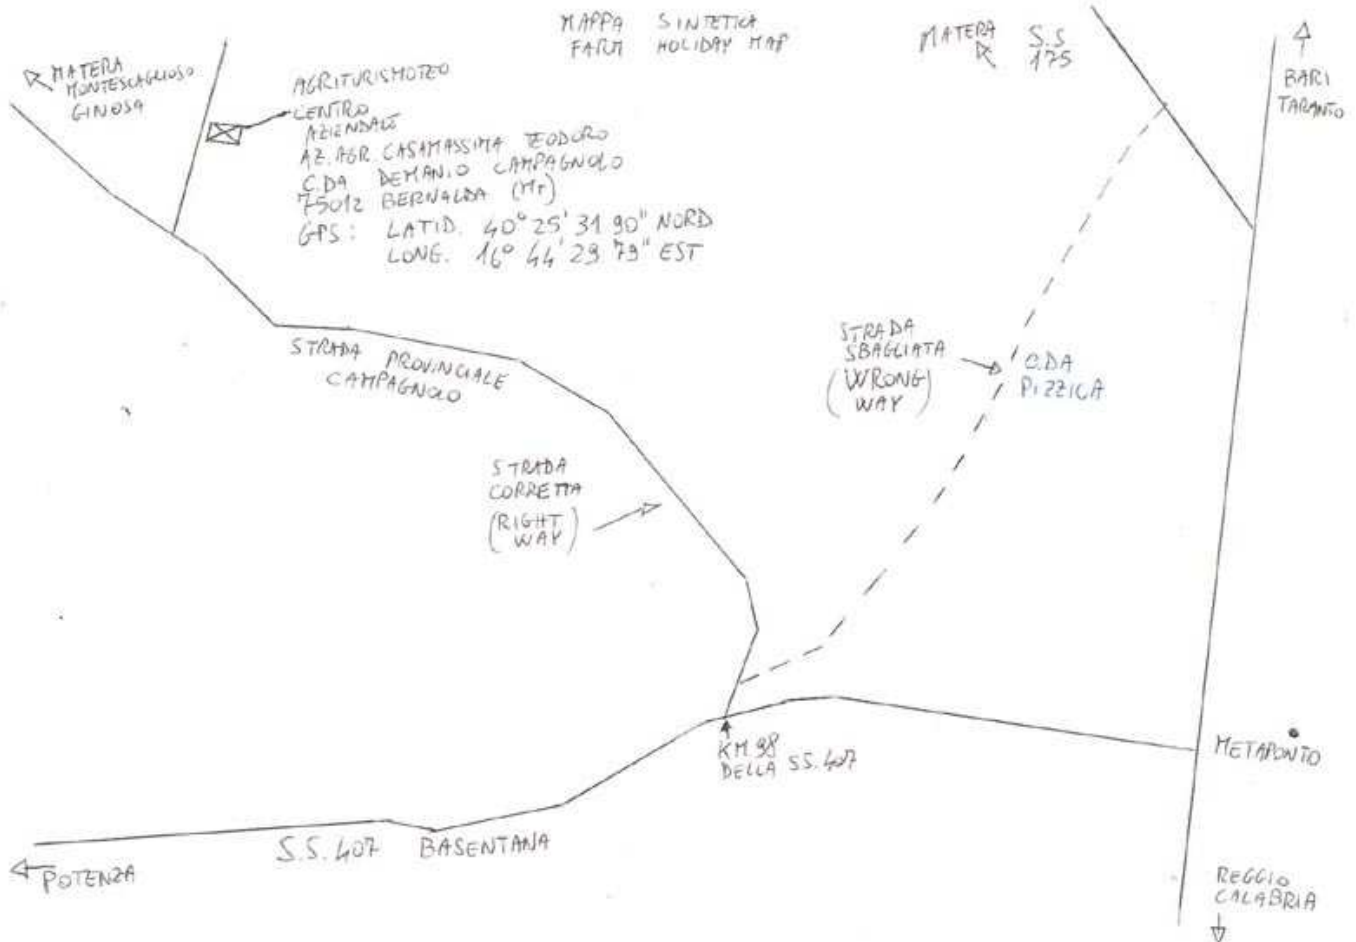 MAPPA SINTETICA
FARM HOLIDAY MAP
MATERA
MONTESCAGLIOSO
GINOSA
AGRITURISMOTEO
CENTRO
AZIENDALE
AZ. AGR. CASAMASSIMA TEODORO
C.DA DEMANIO CAMPAGNOLO
75012 BERNALDA (MT)
GPS: LATID. 40° 25' 31 90" NORD
LONG. 16° 44' 29 79" EST
MATERA
S.S
175
BARI
TARANTO
STRADA PROVINCIALE
CAMPAGNOLO
STRADA
SBAGLIATA
(WRONG
WAY)
C.DA
PIZZICA
STRADA
CORRETTA
(RIGHT
WAY)
KM 98
DELLA SS.407
METAPONTO
S.S.407 BASENTANA
POTENZA
REGGIO
CALABRIA